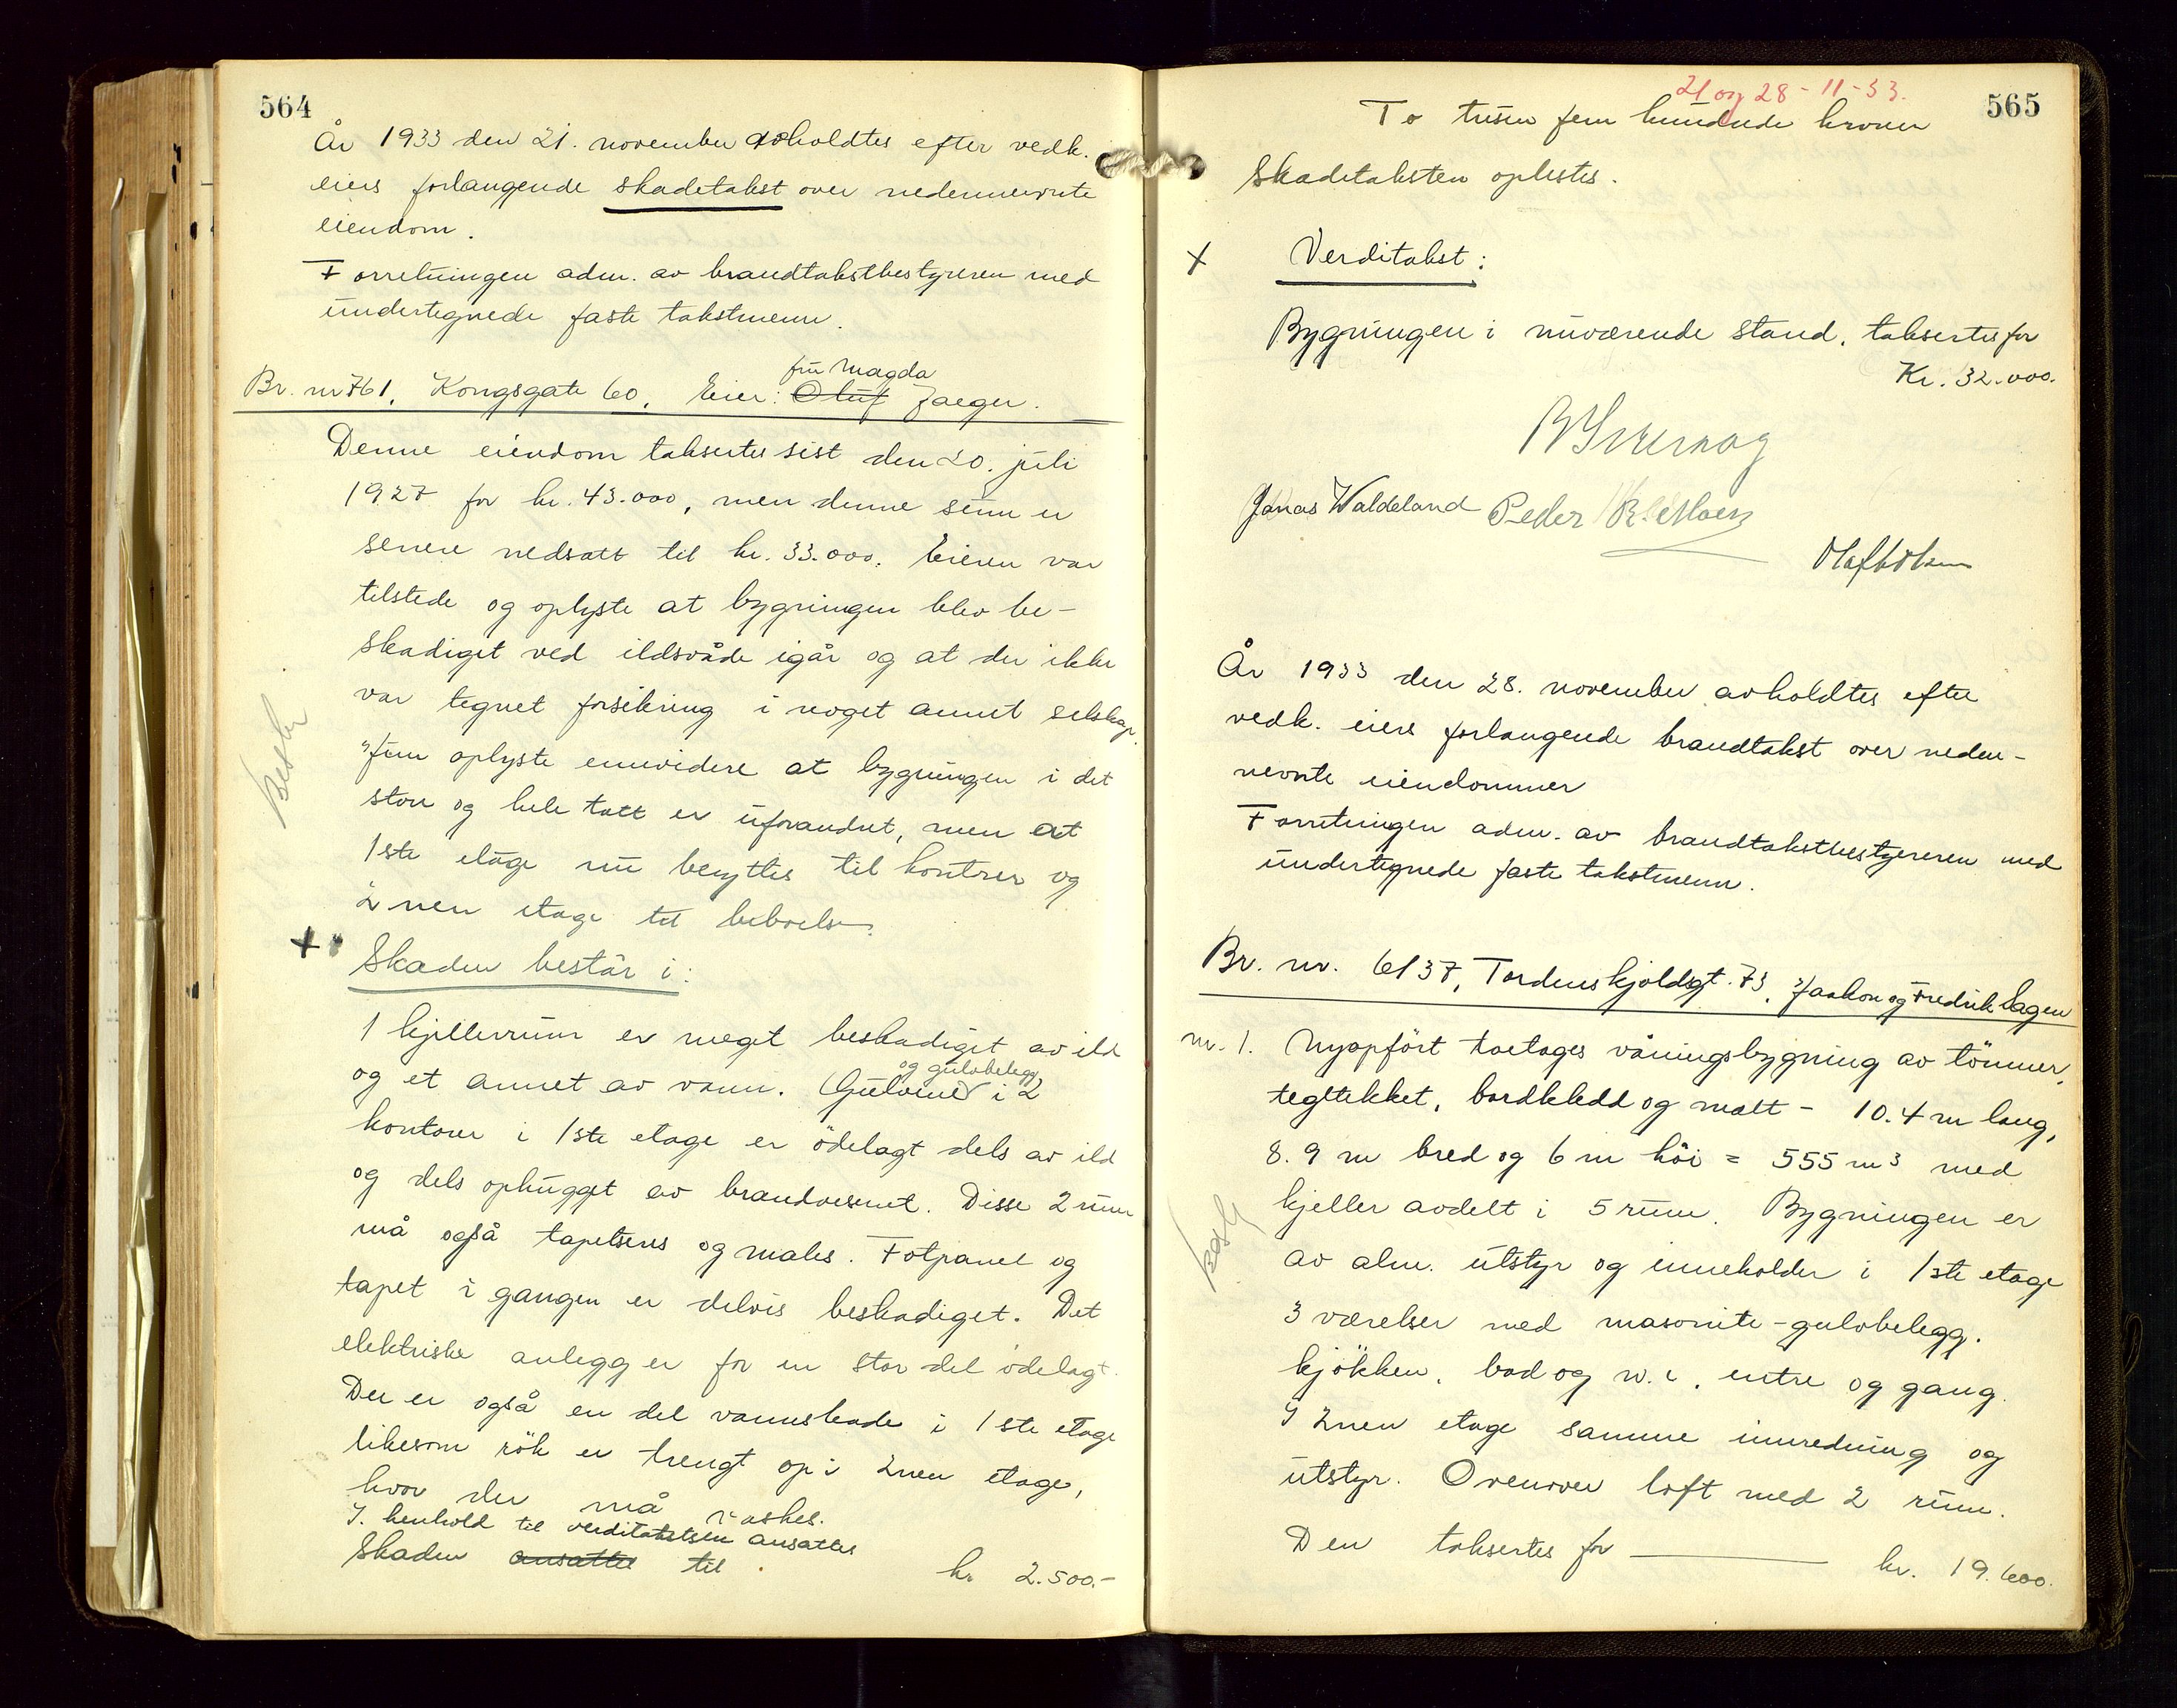 564
År 1933 den 21. november avholdtes efter vedk.
eiers forlangende skadetakst over nedennevnte
eiendom.
Forretningen adm. av brandtakstbestyreren med
undertegnede faste takstmenn.
fru Magda
Br. nr 761, Kongsgate 60, Eier: Oluf Jaeger.
Denne eiendom taksertes sist den 20. juli
1927 for kr. 43.000, men denne sum er
senere nedsatt til kr. 33.000. Eieren var
tilstede og oplyste at bygningen blev be-
skadiget ved ildsvåde igår og at der ikke
var tegnet forsikring i noget annet selskap.
Hun oplyste ennvidere at bygningen i det
store og hele tatt er uforandret, men at
1ste etage nu benyttes til kontorer og
2nen etage til beboelse.
+ Skaden består i:
1 kjellerrum er meget beskadiget av ild
og gulvbelegg
og et annet av vann. Gulvene i 2
kontorer i 1ste etage er ödelagt dels av ild
og dels ophugget av brandvesenet. Disse 2 rum
må også tapetseres og males. Fotpanel og
tapet i gangen er delvis beskadiget. Det
elektriske anlegg er for en stor del ödelagt.
Der er også en del vannskade i 1ste etage
likesom rök er trengt op i 2nen etage,
hvor der må vaskes.
I henhold til verditaksten ansattes
Skaden ansattes til kr. 2.500.-
21 og 28-11-33.
565
To tusen fem hundrede kroner
Skadetaksten oplestes.
+ Verditakst:
Bygningen i nuværende stand, taksertes for
Kr. 32.000.
Jonas Waldeland Peder
År 1933 den 28. november avholdtes efter
vedk. eiers forlangende brandtakst over neden-
nevnte eiendommer
Forretningen adm. av brandtakstbestyreren med
undertegnede faste takstmenn.
Br. nr. 6137, Tordenskjoldsgt. 73, Haakon og Fredrik Hagen
nr. 1. Nyopfört toetages våningsbygning av tömmer,
tegltekket, bordkledd og malt - 10.4 m lang,
8.9 m bred og 6 m höi = 555 m³ med
kjeller avdelt i 5 rum. Bygningen er
av alm. utstyr og inneholder i 1ste etage
3 værelser med masonite-gulvbelegg.
kjökken, bad og w.c, entre og gang.
I 2nen etage samme innredning og
utstyr. Ovenover loft med 2 rum.
Den taksertes for kr. 19.600.